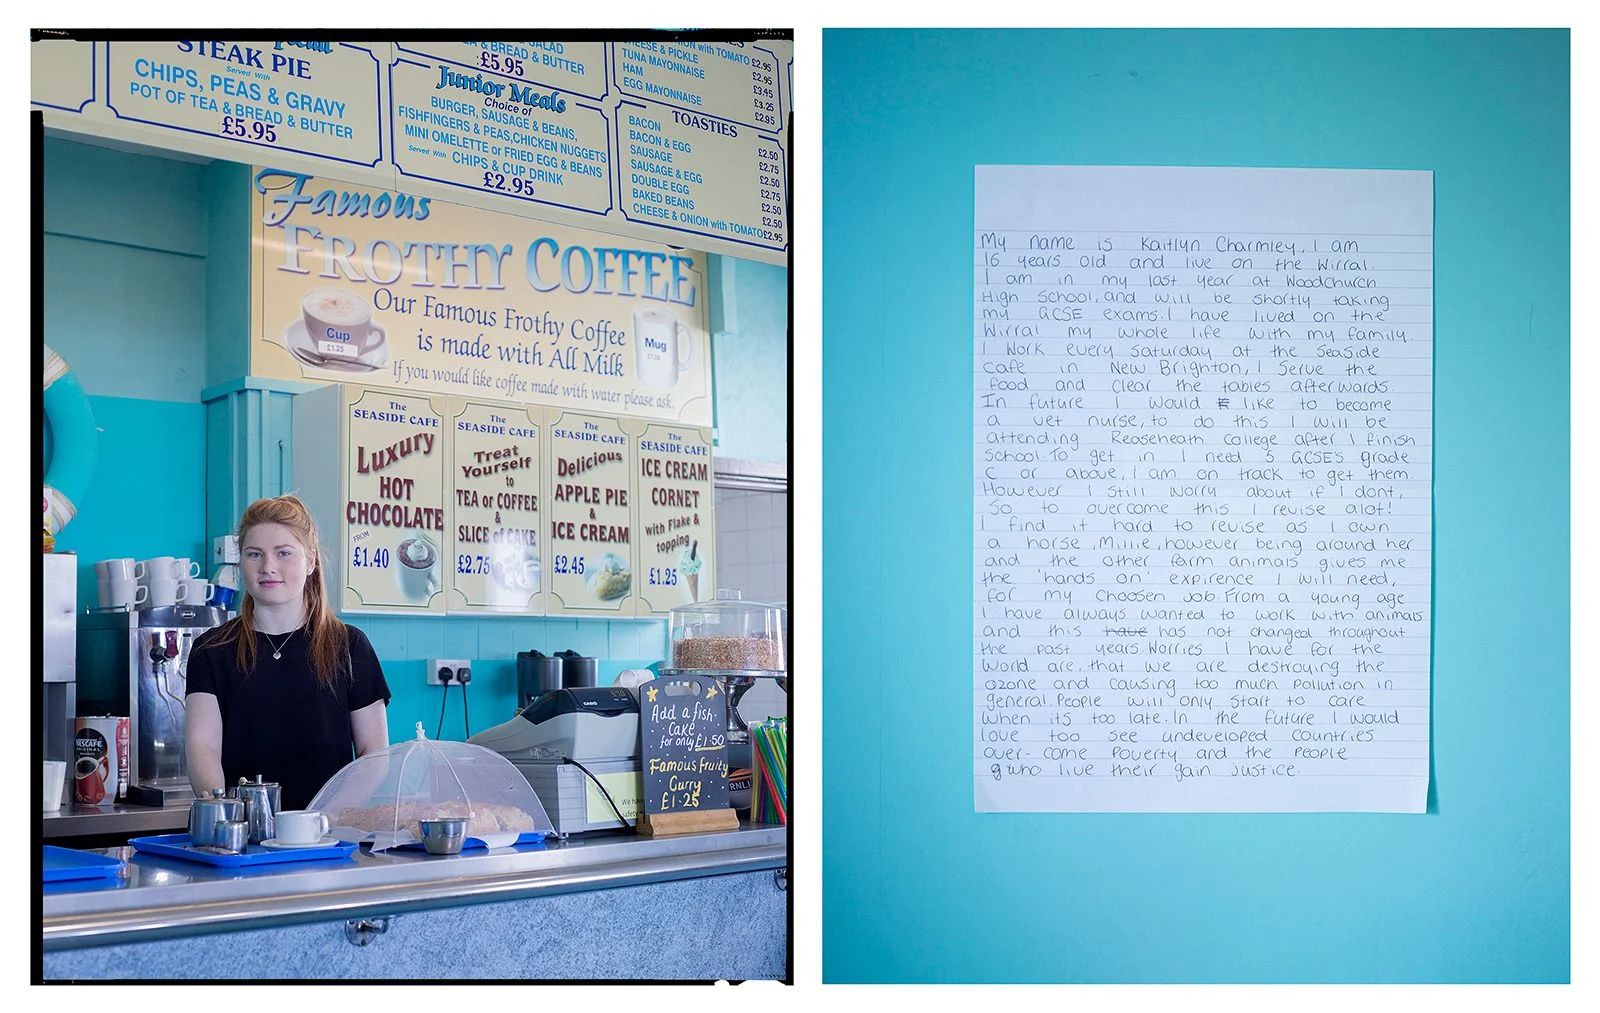 STEAK PIE
Served With
CHIPS, PEAS & GRAVY
POT OF TEA & BREAD & BUTTER
£5.95
& BREAD & BUTTER
£5.95
Junior Meals
Choice of
BURGER, SAUSAGE & BEANS,
FISHFINGERS & PEAS, CHICKEN NUGGETS
MINI OMELETTE or FRIED EGG & BEANS
Served With CHIPS & CUP DRINK
£2.95
CHEESE & PICKLE £2.95
TUNA MAYONNAISE £2.95
HAM £3.45
EGG MAYONNAISE £3.25
£2.95
TOASTIES
BACON £2.50
BACON & EGG £2.75
SAUSAGE £2.50
SAUSAGE & EGG £2.75
DOUBLE EGG £2.50
BAKED BEANS £2.50
CHEESE & ONION with TOMATO £2.95
Famous
FROTHY COFFEE
Our Famous Frothy Coffee
is made with All Milk
If you would like coffee made with water please ask.
Cup
£1.25
Mug
The
SEASIDE CAFE
Luxury
HOT
CHOCOLATE
FROM
£1.40
The
SEASIDE CAFE
Treat
Yourself
to
TEA or COFFEE
&
SLICE of CAKE
£2.75
The
SEASIDE CAFE
Delicious
APPLE PIE
&
ICE CREAM
£2.45
The
SEASIDE CAFE
ICE CREAM
CORNET
with Flake &
topping
£1.25
NESCAFÉ
ORIGINAL
CASIO
Add a fish
Cake
for only £1.50
Famous fruity
Curry
£1.25
We have
RNLI
My name is Kaitlyn Charmley, I am
16 years old and live on the Wirral.
I am in my last year at Woodchurch
High School, and will be shortly taking
my GCSE exams. I have lived on the
Wirral my whole life with my family.
I work every Saturday at the Seaside
cafe in New Brighton, I serve the
food and clear the tables afterwards.
In future I would like to become
a vet nurse, to do this I will be
attending Reaseheath college after I finish
school. To get in I need 5 GCSE's grade
C or above, I am on track to get them.
However I still worry about if I dont,
so to overcome this I revise alot!
I find it hard to revise as I own
a horse, Millie, however being around her
and the other farm animals gives me
the 'hands on' expirence I will need,
for my choosen job. From a young age
I have always wanted to work with animals
and this have has not changed throughout
the past years. Worries I have for the
world are, that we are destroying the
ozone and causing too much pollution in
general. People will only start to care
when its too late. In the future I would
love too see undeveloped countries
over-come poverty and the people
who live their gain justice.